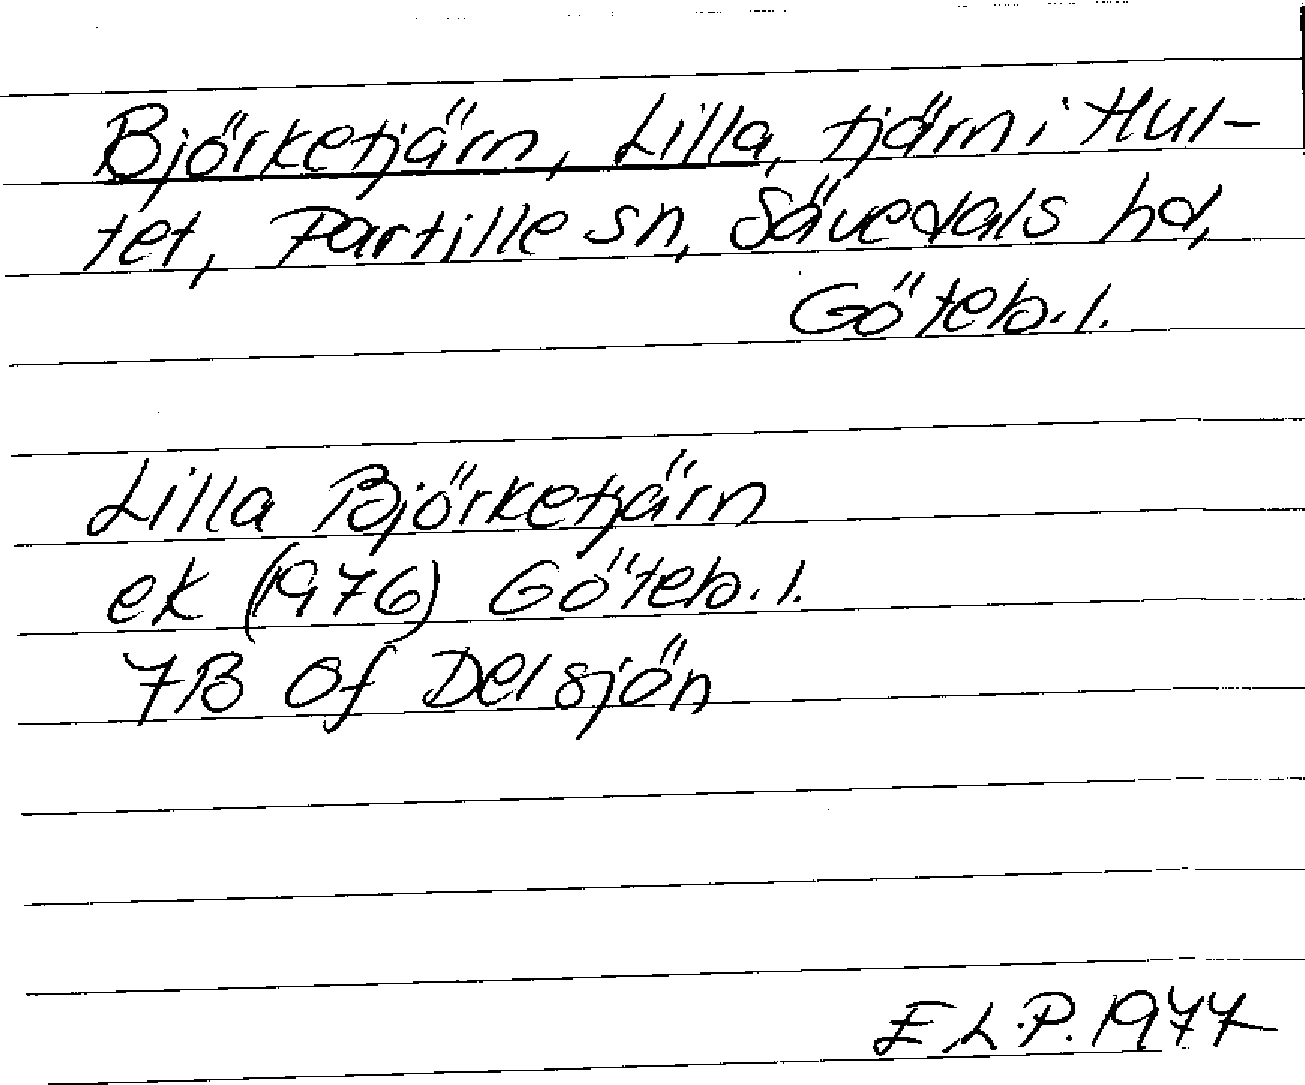 Björketjärn, Lilla, tjärn i Hul-
tet, Partille sn, Sävedals hd,
Göteb. l.
Lilla Björketjärn
ek (1976) Göteb. l.
7B 0f Delsjön
E L. P. 1977